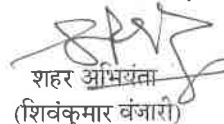 शहर अभियंता
(शिवंकुमार वंजारी)